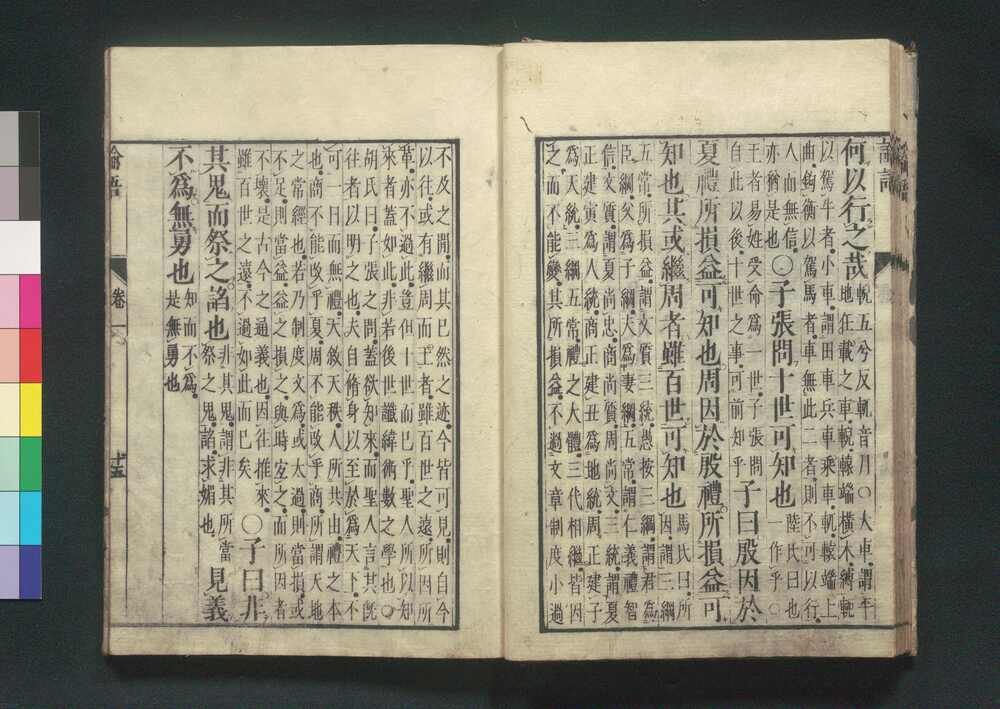 論語
何以行之哉
輗五兮反軏音月○大車謂平
地任載之車輗轅端橫木縛軛
以駕牛者小車謂田車兵車乘車軏轅端上
曲鉤衡以駕馬者車無此二者則不可以行
人而無信
亦猶是也
○子張問十世可知也
陸氏曰也
一作乎○
王者易姓受命爲一世子張問
自此以後十世之事可前知乎
子曰殷因於
夏禮所損益可知也周因於殷禮所損益可
知也其或繼周者雖百世可知也
馬氏曰所
因謂三綱
五常所損益謂文質三統愚按三綱謂君爲
臣綱父爲子綱夫爲妻綱五常謂仁義禮智
信文質謂夏尚忠商尚質周尚文三統謂夏
正建寅爲人統商正建丑爲地統周正建子
爲天統三綱五常禮之大體三代相繼皆因
之而不能變其所損益不過文章制度小過
不及之閒而其已然之迹今皆可見則自今
以往或有繼周而王者雖百世之遠所因所
革亦不過此豈但十世而已乎聖人所以知
來者蓋如此非若後世讖緯術數之學也○
胡氏曰子張之問蓋欲知來而聖人言其旣
往者以明之也夫自脩身以至於爲天下不
可一日而無禮天敘天秩人所共由禮之本
也商不能改乎夏周不能改乎商所謂天地
之常經也若乃制度文爲或太過則當損或
不足則當益益之損之與時宜之而所因者
不壞是古今之通義也因往推來
雖百世之遠不過如此而已矣
○子曰非
其鬼而祭之諂也
非其鬼謂非其所當
祭之鬼諂求媚也
見義
不爲無勇也
知而不爲
是無勇也
論語 卷一 十五